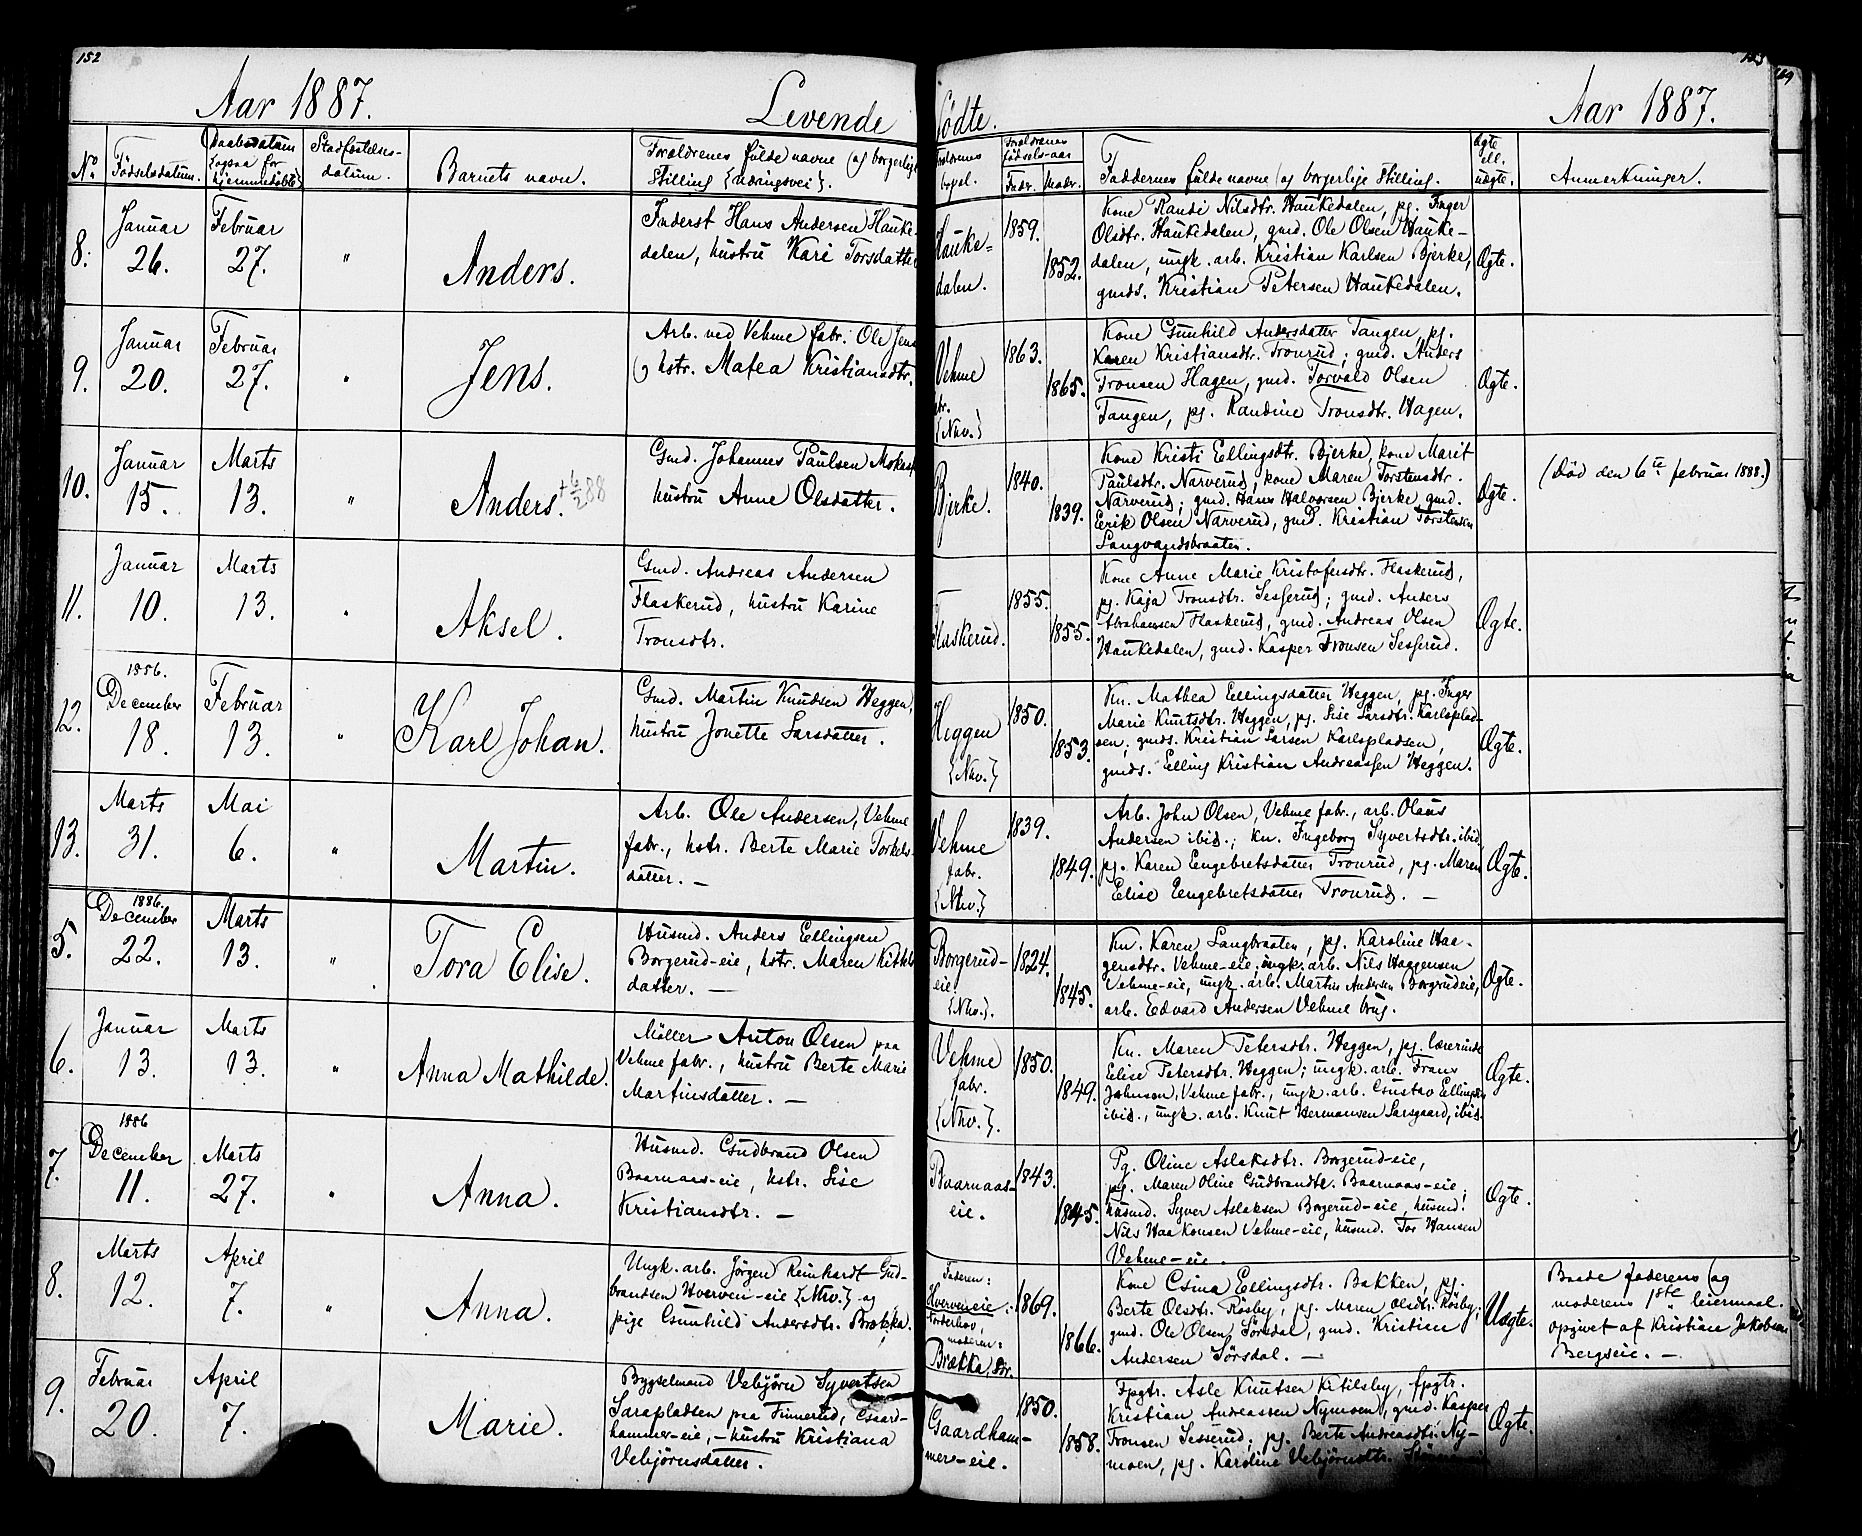 152
Aar 1887.
Levende
No
Födselsdatum.
Daabsdatum
(ogsaa for
hjemmedöbte)
Stadfæstelses-
datum.
Barnets navn.
Forældrenes fulde navne (og borgerlige
Stilling {næringsvei}.
8.
Januar
26.
Februar
27.
"
Anders.
Inderst Hans Andersen Hauke-
dalen, hustru Kari Torsdatter
9.
Januar
20.
Februar
27.
"
Jens.
Arb. ved Vehme fabr. Ole Jens
hstr. Matea Kristiansdtr.
10.
Januar
15.
Marts
13.
"
Anders. + 6/2 88
Gmd. Johannes Paulsen
hustru Anne Olsdatter.
11.
Januar
10.
Marts
13.
"
Aksel.
Gmd. Andreas Andersen
Flaskerud, hustru Karine
Tronsdtr.
12.
1856.
December
18.
Februar
13.
"
Karl Johan.
Gmd. Martin Knudsen Heggen,
hustru Jonette Larsdatter.
13.
Marts
31.
Mai
6.
"
Martin.
Arb. Ole Andersen, Vehme
fabr., hstr. Berte Marie Torkels-
datter. —
5.
1886.
December
22.
Marts
13.
"
Tora Elise.
Husmd. Anders Ellingsen
Borgerud-eie, hstr. Maren Kittels
datter. —
6.
Januar
13.
Marts
13.
"
Anna Mathilde.
Möller Anton Olsen paa
Vehme fabr., hustru Berte Marie
Martinsdatter. —
7.
1886
December
11.
Marts
27.
"
Anna.
Husmd. Gudbrand Olsen
Baarnaas-eie, hstr. Lise
Kristiansdtr. —
8.
Marts
12.
April
7.
"
Anna.
Ungk. arb. Jörgen Reinhardt Gud-
brandsen Hverven-eie {Nhv.} og
pige Gunhild Andersdtr. Brækka.
9.
Februar
20.
April
7.
Marie.
Bygselmand Vebjörn Syvertsen
Larspladsen paa Finnerud, Gaard-
hammer-eie, — hustru Kristiana
Vebjörnsdatter.
153
födte.
Aar 1887.
Forældrenes
bopæl.
Forældrenes
födsels-aar
Fadr.
Modr.
Faddernes fulde navne (og borgerlige Stilling.
Ægte
ell.
uægte.
Anmerkninger.
Hauke-
dalen.
1859.
1852.
Kone Randi Nilsdtr. Haukedalen, pg. Inger
Olsdtr. Haukedalen, gmd. Ole Olsen Hauke-
dalen, ungk. arb. Kristian Karlsen Bjerke,
gmds. Kristian Petersen Haukedalen.
Ægte.
Vehme
fbr.
{Nhv.}
1863.
1865.
Kone Gunhild Andersdatter Tangen, pg.
Karen Kristiansdtr. Tronrud; gmd. Anders
Tronsen Hagen, gmd. Torvald Olsen
Tangen, pg. Randine Tronsdtr. Hagen.
Ægte.
Bjerke.
1840.
1839.
Kone Kristi Ellingsdtr. Bjerke, kone Marit
Paulsdtr. Narverud, kone Maren Torstensdtr.
Narverud; gmd. Hans Halvorsen Bjerke, gmd.
Eerik Olsen Narverud, gmd. Kristian Torstensen
Langvandsbraaten.
Ægte.
(död den 6te februar 1888.)
Flaskerud.
1855.
1855.
Kone Anne Marie Kristofersdtr. Flaskerud,
pg. Kaja Tronsdtr. Sesserud; gmd. Anders
Abrahamsen Flaskerud, gmd. Andreas Olsen
Haukedalen, gmd. Kasper Tronsen Sesserud.
Ægte.
Heggen
{Nhv.}
1850.
1853.
Kn. Mathea Ellingsdatter Heggen, pg. Inger
Marie Knutsdtr. Heggen, pg. Lise Larsdtr. Karlsplad-
sen; gmds. Kristian Larsen Karlspladsen,
gmds. Elling Kristian Andreassen Heggen.
Ægte.
Vehme
fabr.
{Nhv.}
1839.
1849.
Arb. John Olsen, Vehme fabr., arb. Olaus
Andersen ibid.; kn. Ingeborg Syvertsdtr. ibid,
pg. Karen Engebretsdatter Tronrud, pg. Maren
Elise Engebretsdatter Tronrud. —
Ægte.
Borgerud-
eie
{Nhv.}.
1824.
1845.
Kn. Karen Langbraaten, pg. Karoline Haa-
gensdtr. Vehme-eie; ungk. arb. Nils Haagensen
Vehme-eie, ungk. arb. Martin Andersen Borgerudeie,
arb. Edvard Andersen Vehme brug.
Ægte.
Vehme
fabr.
{Nhv.}.
1850.
1849.
Kn. Maren Petersdtr. Heggen, pg. lærerinde
Elise Petersdtr. Heggen; ungk. arb. Frans
Johnsen, Vehme fabr., ungk. arb. Gustav Ellingsen
ibid., ungk. arb. Knut Hermansen Larsgaard, ibid.
Ægte.
Baarnaas-
eie.
1843.
1845.
Pg. Oline Aslaksdtr. Borgerud-eie,
pg. Maren Oline Gudbrandtr. Baarnaas-eie;
husmd. Syver Aslaksen Borgerud-eie, husmd.
Nils Haakonsen Vehme-eie, husmd. Tor Hansen
Vehme-eie.
Ægte.
Faderen:
Hverveneie:
Norderhov,
moderen:
Brækka, Sör.
1869.
1866.
Kone Gina Ellingsdtr. Bakken, pg.
Berte Olsdtr. Rösby, pg. Maren Olsdtr. Rösby;
gmd. Ole Olsen Sörsdal, gmd. Kristian
Andersen Sörsdal. —
Uægte.
Baade faderens (og
moderens 1ste leiermaal.
opgivet af Kristian Jakobsen
Bergseie. —
Gaardham-
mer-eie.
1850.
1858.
Fpgtr. Asle Knutsen Ketilsby, fpgtr.
Kristian Andreassen Nymoen, gmd. Kasper
Tronsen Sesserud; pg. Berte Andreasdtr. Ny-
moen, pg. Karoline Vebjörnsdtr.
Ægte.